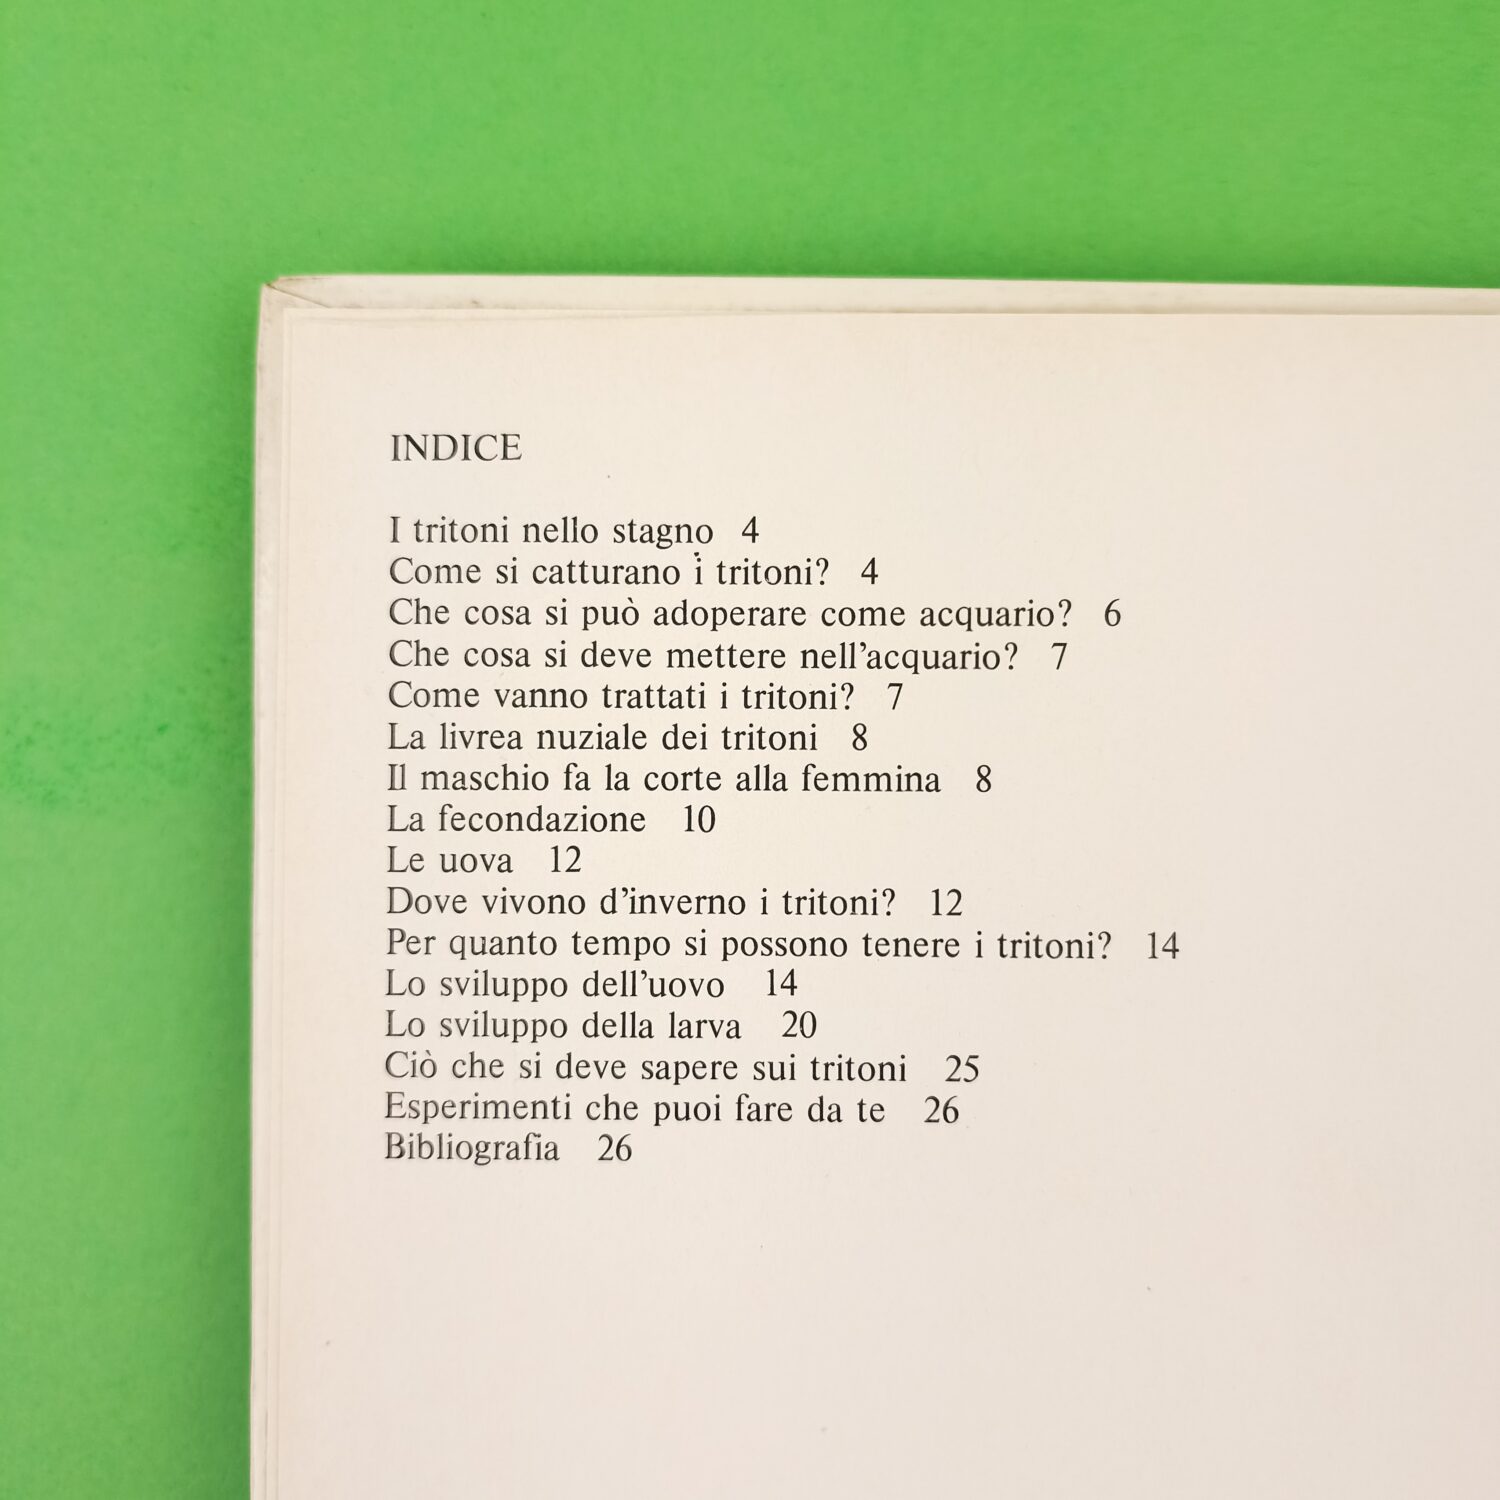 INDICE
I tritoni nello stagno 4
Come si catturano i tritoni? 4
Che cosa si può adoperare come acquario? 6
Che cosa si deve mettere nell'acquario? 7
Come vanno trattati i tritoni? 7
La livrea nuziale dei tritoni 8
Il maschio fa la corte alla femmina 8
La fecondazione 10
Le uova 12
Dove vivono d'inverno i tritoni? 12
Per quanto tempo si possono tenere i tritoni? 14
Lo sviluppo dell'uovo 14
Lo sviluppo della larva 20
Ciò che si deve sapere sui tritoni 25
Esperimenti che puoi fare da te 26
Bibliografia 26